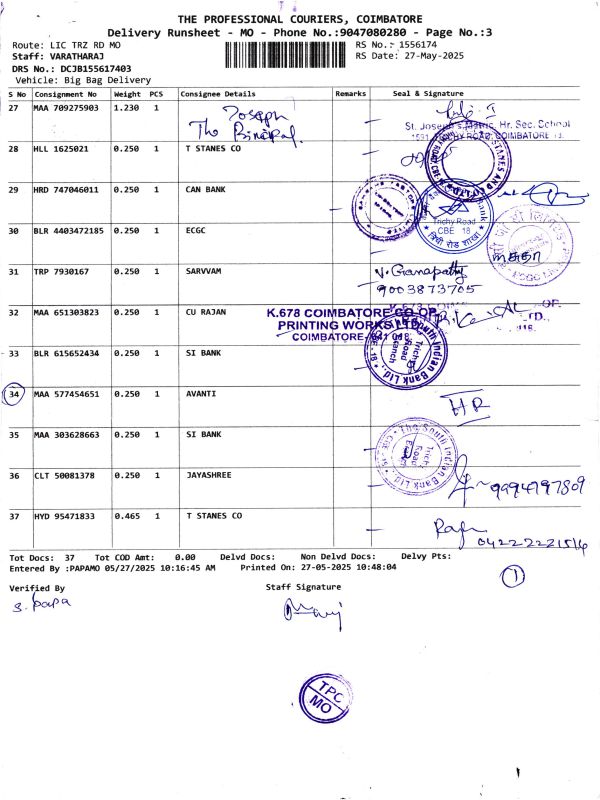 THE PROFESSIONAL COURIERS, COIMBATORE
Delivery Runsheet - MO - Phone No.:9047080280 - Page No.:3
Route: LIC TRZ RD MO RS No.: 1556174
Staff: VARATHARAJ RS Date: 27-May-2025
DRS No.: DCJB155617403
Vehicle: Big Bag Delivery
S No Consignment No Weight PCS Consignee Details Remarks Seal & Signature
27 MAA 709275903 1.230 1 Joseph
The Principal.
St. Joseph's Matric. Hr. Sec. School
1591, TRICHY ROAD, COIMBATORE
28 HLL 1625021 0.250 1 T STANES CO
STANES AND
29 HRD 747046011 0.250 1 CAN BANK
Bank
Trichy Road
CBE 18
30 BLR 4403472185 0.250 1 ECGC
31 TRP 7930167 0.250 1 SARVVAM V. Ganapathy
9003873705
32 MAA 651303823 0.250 1 CU RAJAN
K.678 COIMBATORE CO.OP.
PRINTING WORKS LTD.,
COIMBATORE-641 018.
33 BLR 615652434 0.250 1 SI BANK
South Indian Bank Ltd.,
Trichy
Road
Branch
34 MAA 577454651 0.250 1 AVANTI HR
35 MAA 303628663 0.250 1 SI BANK
The South Indian Bank Ltd.,
Trichy
Road
36 CLT 50081378 0.250 1 JAYASHREE 9994197809
37 HYD 95471833 0.465 1 T STANES CO
Tot Docs: 37 Tot COD Amt: 0.00 Delvd Docs: Non Delvd Docs: Delvy Pts:
Entered By :PAPAMO 05/27/2025 10:16:45 AM Printed On: 27-05-2025 10:48:04
1
Verified By Staff Signature
S. Papa
TPC
MO